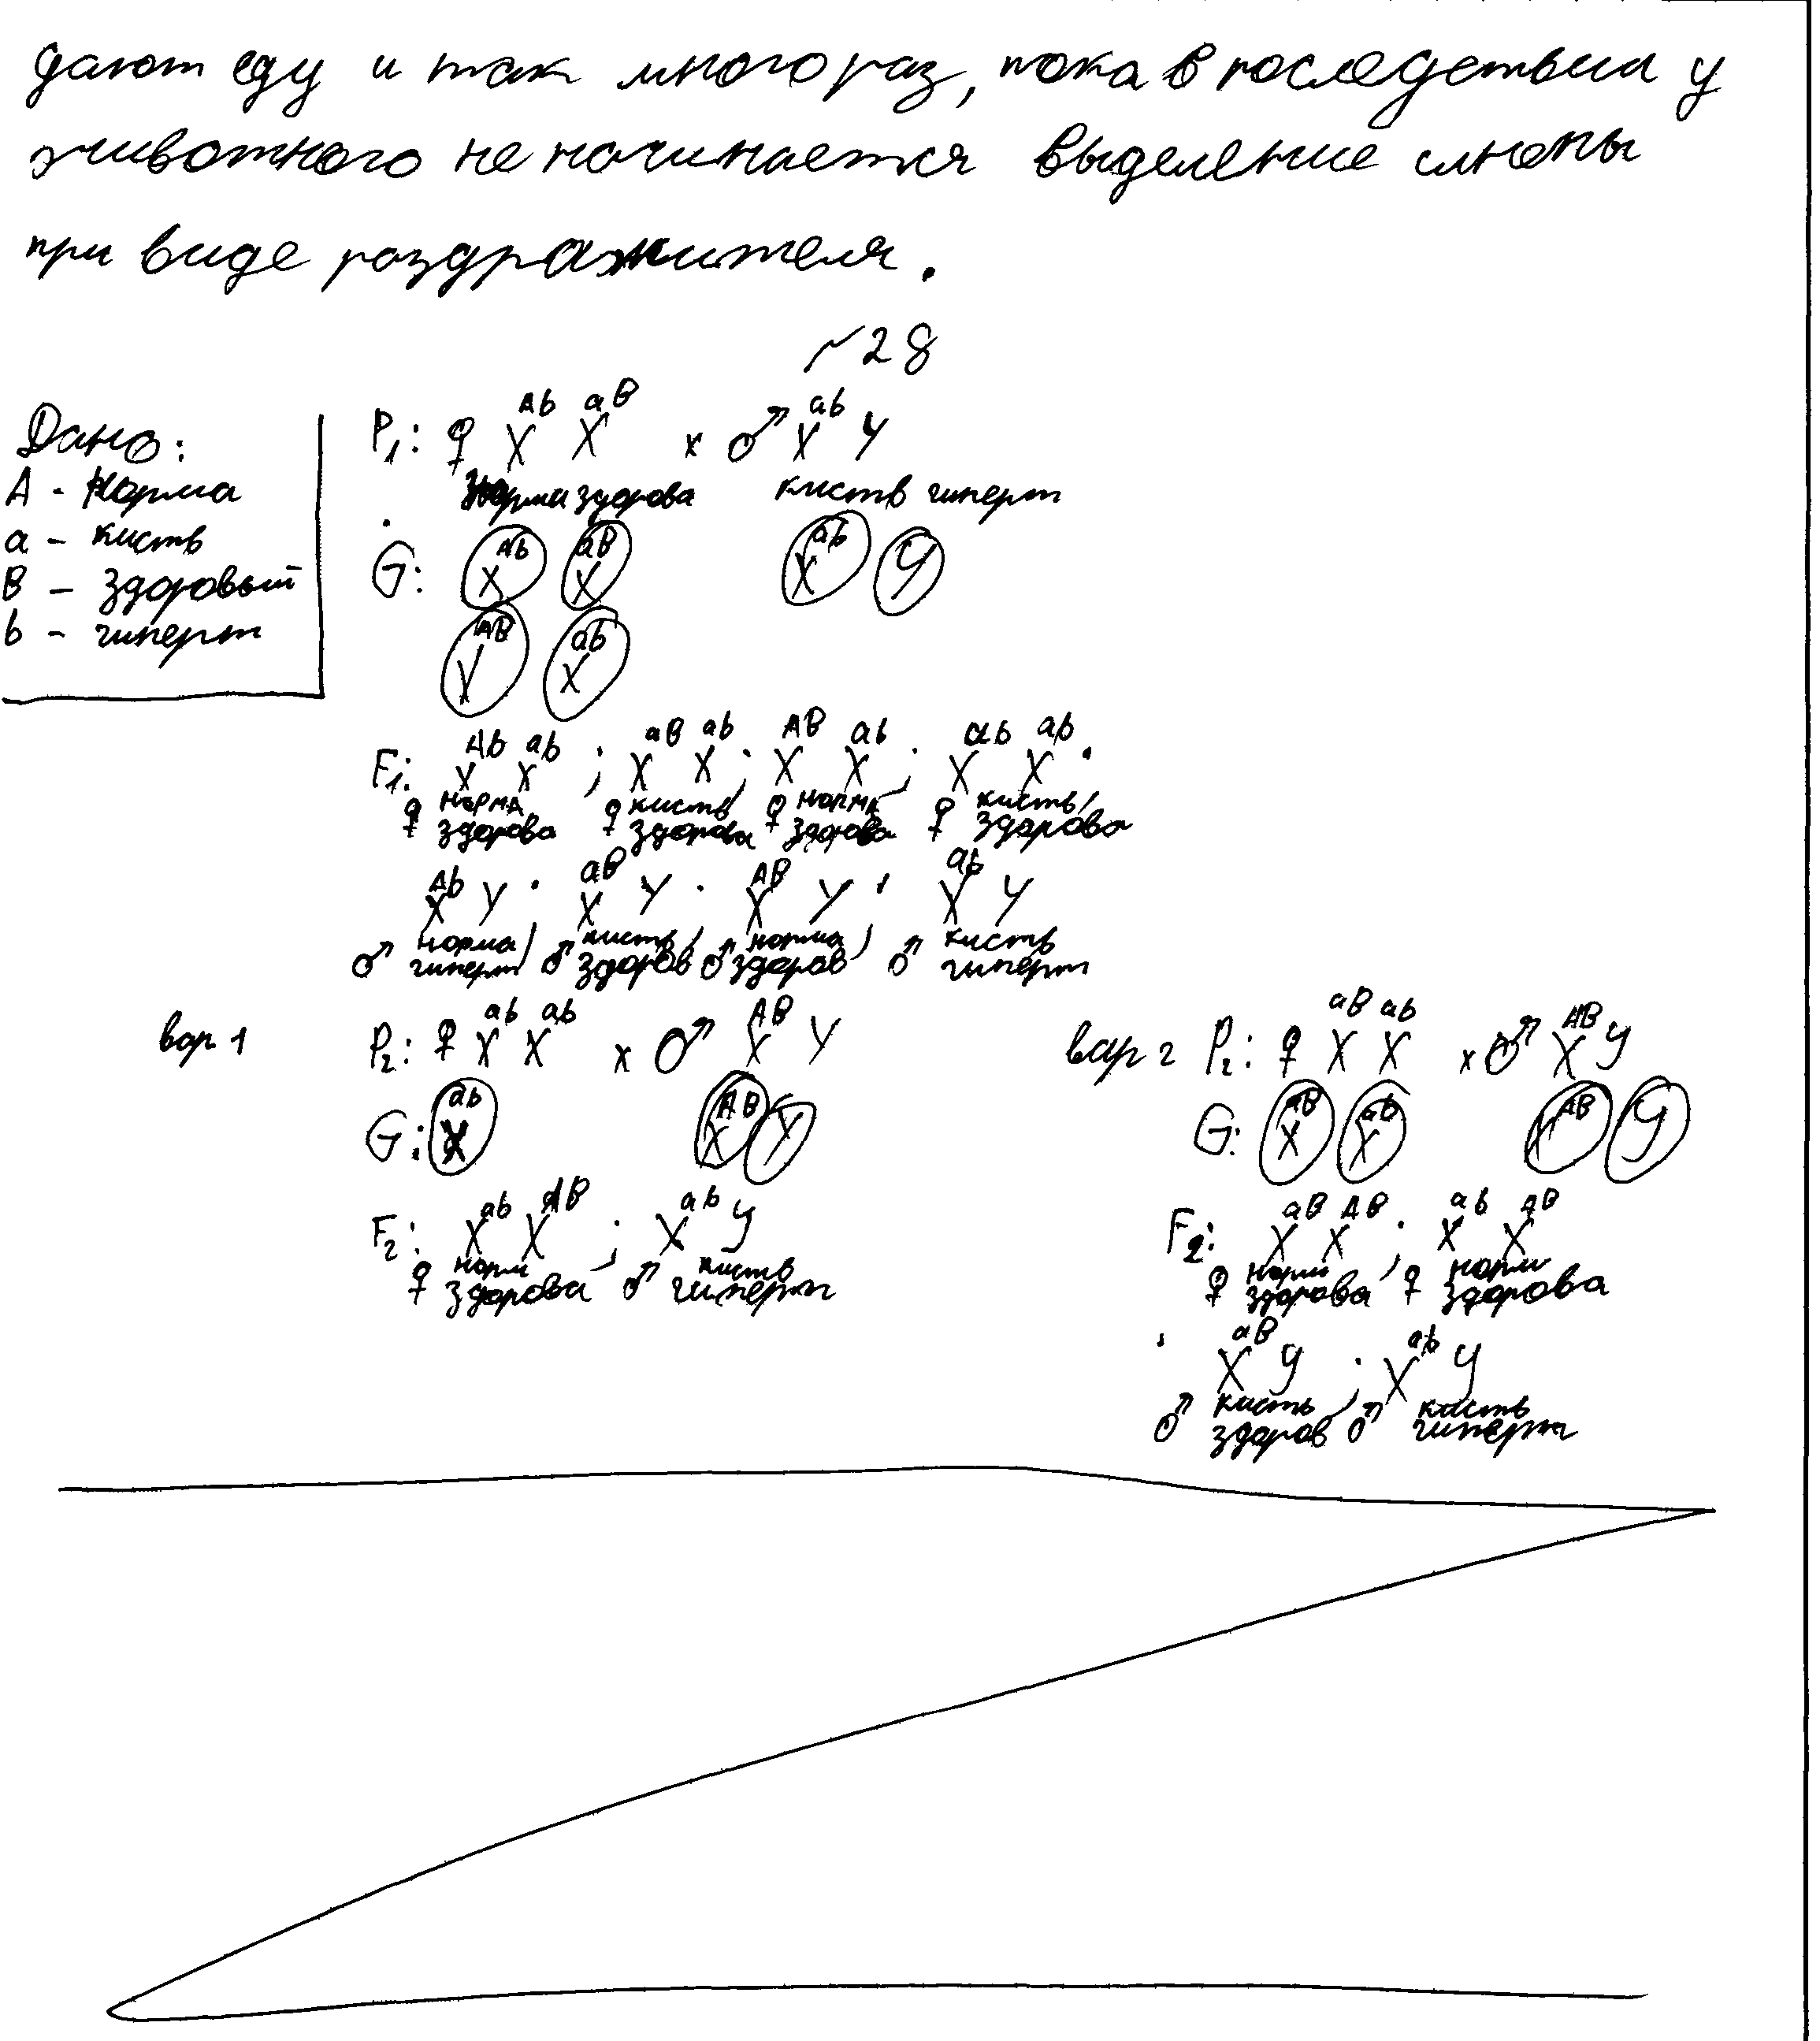 дают еду и так много раз, пока в последствии у
животного не начинается выделение слюны
при виде раздражителя.
~28
Дано:
A - Норма
a - кисть
B - здоровый
b - гиперт
P1: ♀ X^Ab X^aB x ♂ X^ab Y
норма здорова кисть гиперт
G: X^Ab X^aB X^ab Y
X^AB X^ab
F1: X^Ab X^ab ; X^aB X^ab ; X^AB X^ab ; X^ab X^ab ;
♀ норма ♀ кисть ♀ норма ♀ кисть,
здорова здорова здорова здорова
X^Ab Y ; X^aB Y ; X^AB Y ; X^ab Y
♂ норма ♂ кисть ♂ норма ♂ кисть
гиперт здоров здоров гиперт
вар 1 P2: ♀ X^ab X^ab x ♂ X^AB Y
G: X^ab X^AB Y
F2: X^ab X^AB ; X^ab Y
♀ норм ♂ кисть
здорова гиперт
вар 2 P2: ♀ X^aB X^ab x ♂ X^AB Y
G: X^aB X^ab X^AB Y
F2: X^aB X^AB ; X^ab X^AB
♀ норм ♀ норм
здорова здорова
X^aB Y ; X^ab Y
♂ кисть ♂ кисть
здоров гиперт